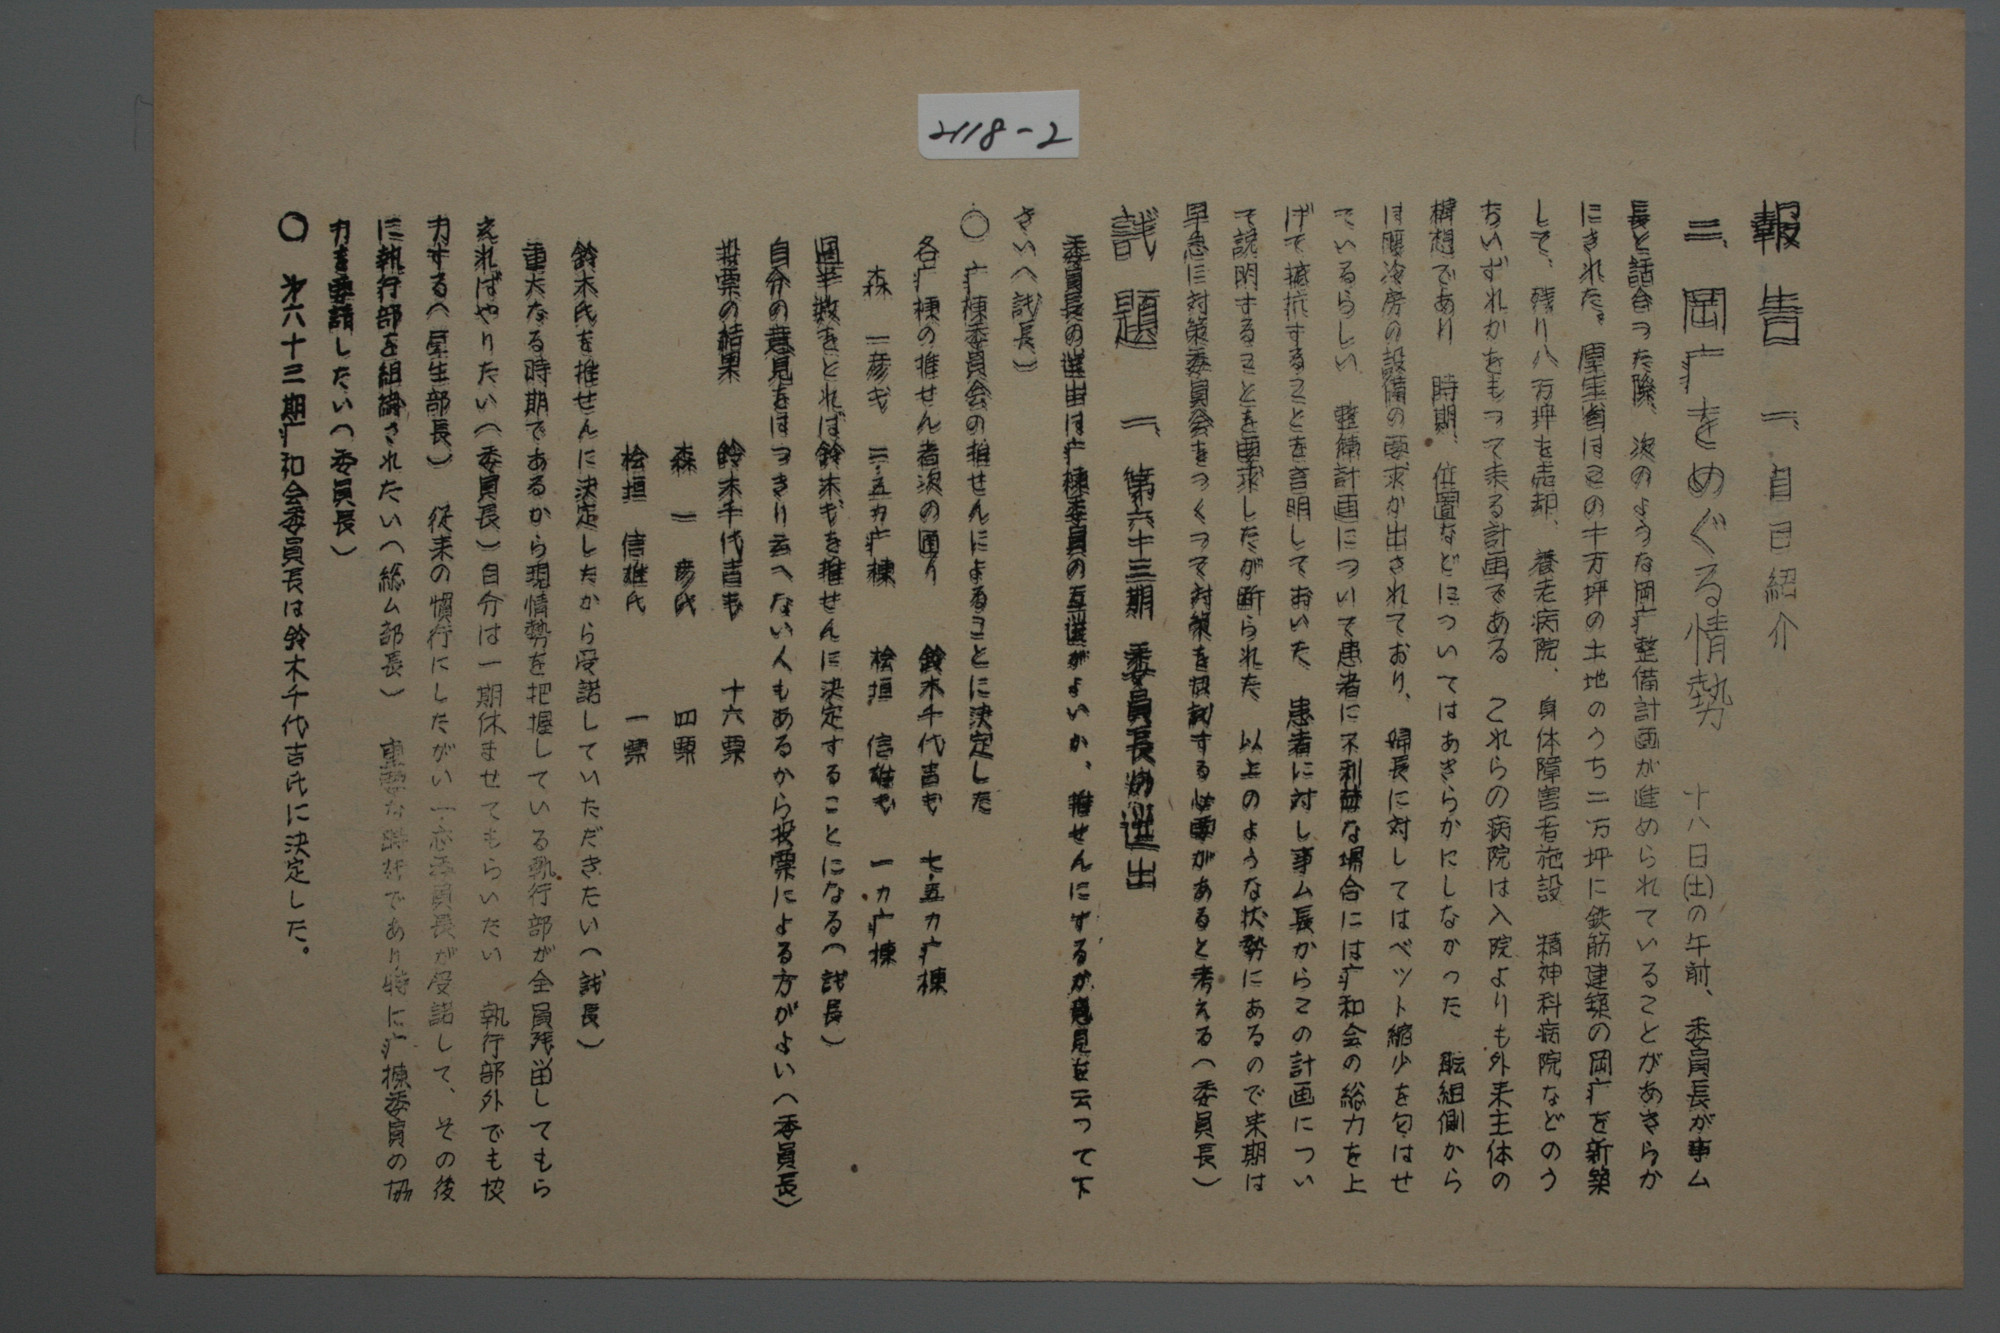 2118-2
報告 一、自己紹介
二、岡疒をめぐる情勢 十八日(土)の午前、委員長が事ム
長と話合った際、次のような岡疒整備計画が進められていることがあきらか
にされた。厚生省はこの十万坪の土地のうち二万坪に鉄筋建築の岡疒を新築
して、残り八万坪を売却、養老病院、身体障害者施設 精神科病院などのう
ちいずれかをもって来る計画である これらの病院は入院よりも外来主体の
構想であり 時期、位置などについてはあきらかにしなかった 転組側から
は暖冷房の設備の要求が出されており、婦長に対してはベット縮少を匂はせ
ているらしい 整備計画について患者に不利益な場合には疒和会の総力を上
げて抵抗することを言明しておいた 患者に対し事ム長からこの計画につい
て説明することを要求したが断られた 以上のような状勢にあるので来期は
早急に対策委員会をつくって対策を協議する必要があると考える(委員長)
議題 一、第六十三期委員長の選出
委員長の選出は疒棟委員の互選がよいか、推せんにするか意見を云って下
さい(議長)
○ 疒棟委員会の推せんによることに決定した
各疒棟の推せん者次の通り 鈴木千代吉氏 七.五カ疒棟
森 一彦氏 三.五カ疒棟 桧垣 信雄氏 一カ疒棟
過半数をとれば鈴木氏を推せんに決定することになる(議長)
自分の意見をはっきり云へない人もあるから投票による方がよい(委員長)
投票の結果 鈴木千代吉氏 十六票
森 一彦氏 四票
桧垣 信雄氏 一票
鈴木氏を推せんに決定したから受諾していただきたい(議長)
重大なる時期であるから現情勢を把握している執行部が全員残留してもら
えればやりたい(委員長)自分は一期休ませてもらいたい 執行部外でも協
力する(厚生部長) 従来の慣行にしたがい一応委員長が受諾して、その後
に執行部を組織されたい(総ム部長) 重要な時であり特に疒棟委員の協
力を要請したい(委員長)
○ 才六十三期疒和会委員長は鈴木千代吉氏に決定した。